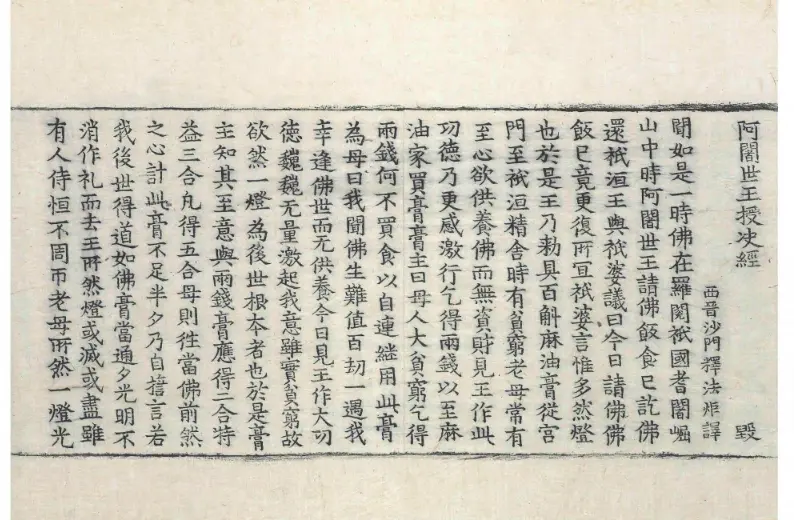 阿闍世王授决經 毀
西晉沙門釋法炬譯
聞如是一時佛在羅閱祇國耆闍崛
山中時阿闍世王請佛飯食已訖佛
還祇洹王與祇婆議曰今日請佛佛
飯已竟更復所冝祇婆言惟多然燈
也於是王乃勑具百斛麻油膏從宮
門至祇洹精舍時有貧窮老母常有
至心欲供養佛而無資財見王作此
功德乃更感激行乞得兩錢以至麻
油家買膏膏主曰母人大貧窮乞得
兩錢何不買食以自連継用此膏
為母曰我聞佛生難值百劫一遇我
幸逢佛世而无供養今日見王作大功
德巍巍无量激起我意雖實貧窮故
欲然一燈為後世根夲者也於是膏
主知其至意與兩錢膏應得二合特
益三合凡得五合母則徃當佛前然
之心計此膏不足半夕乃自誓言若
我後世得道如佛膏當通夕光明不
消作礼而去王所然燈或滅或盡雖
有人侍恒不周帀老母所然一燈光